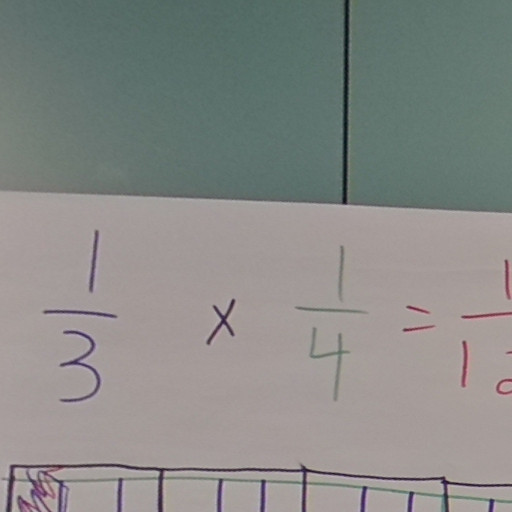 1/3 × 1/4 = 1/12